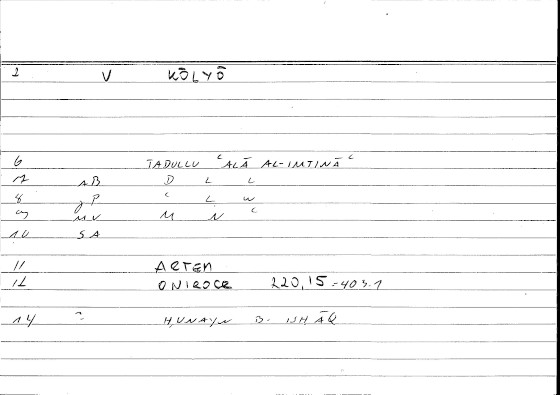 1 V KŌLYŌ
6 TADULLU ʿALĀ AL-IMTINĀʿ
7 AB D L L
8 gP ʿ L W
9 MV M N ʿ
10 SA
11 ARTEM
12 ONIROCR 220,15 = 403.1
14 ~ ḤUNAYN B. ISḤĀQ